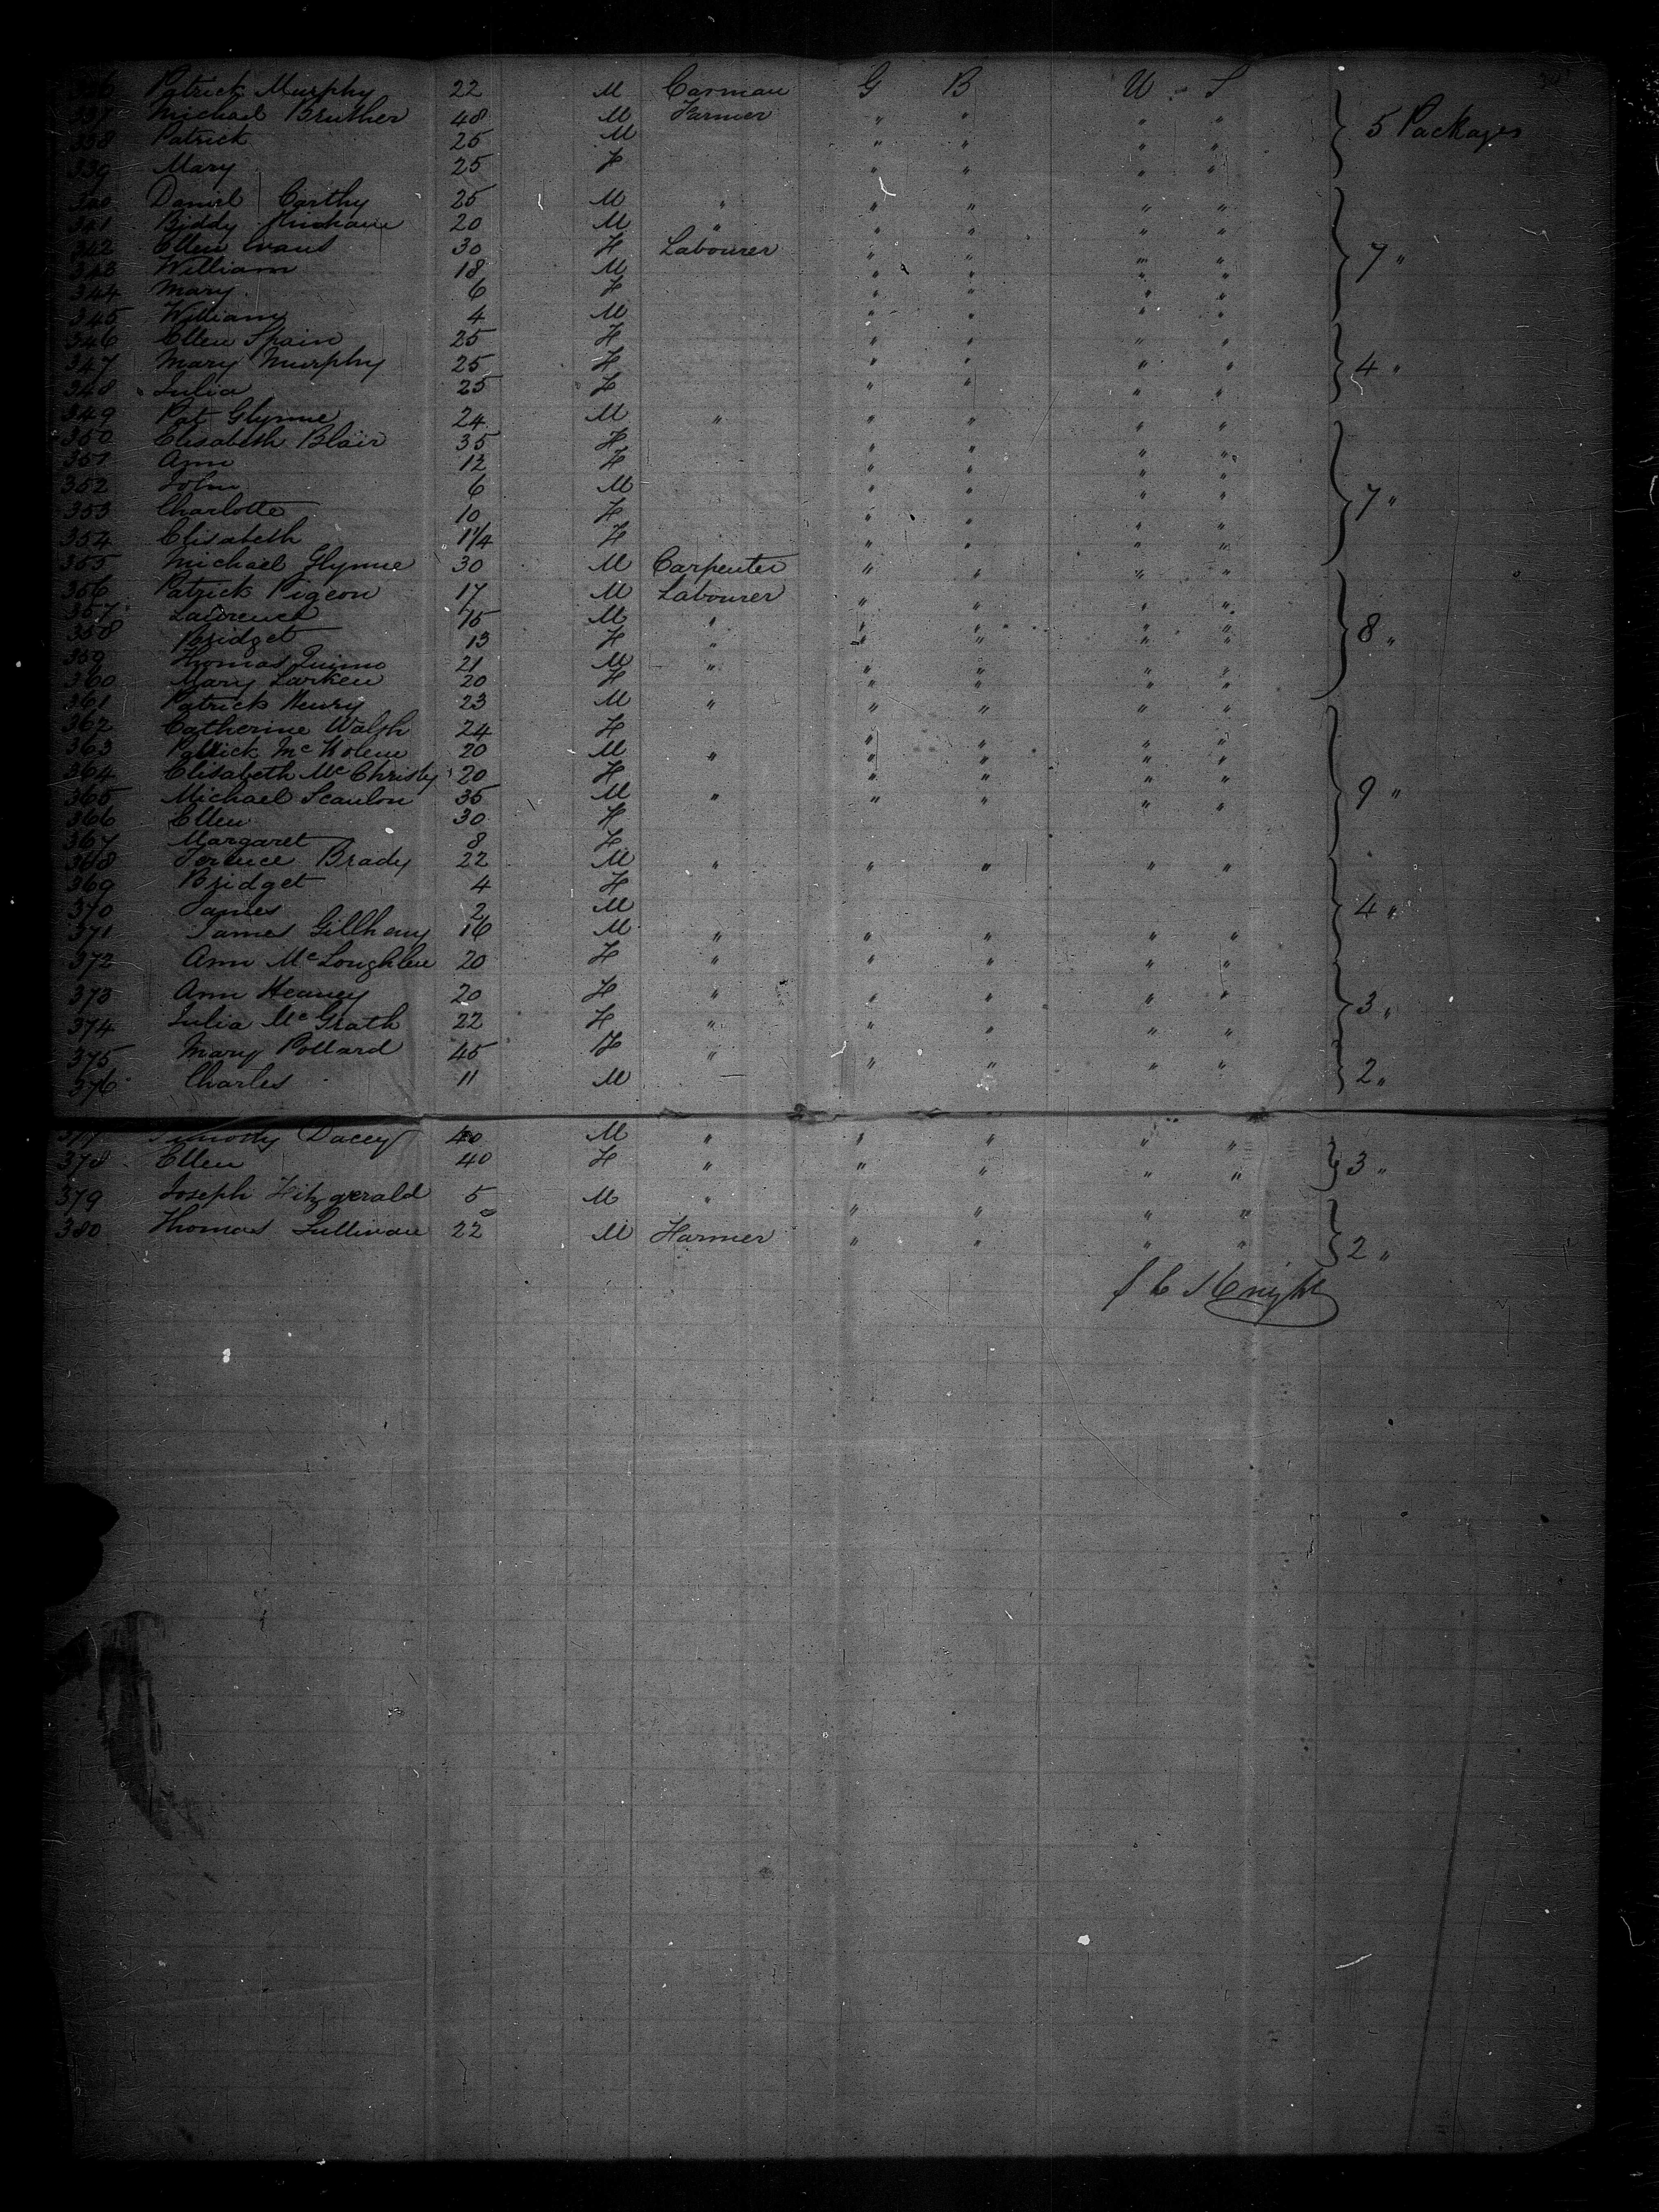 336 Patrick Murphy 22 M Carman G B U S
337 Michael Bruther 48 M Farmer " " " " 5 Packages
338 Patrick 25 M " " " "
339 Mary 25 F " " " "
340 Daniel Carthy 25 M " " " " "
341 Biddy 20 M " " " " "
342 Ellen Evans 30 F Labourer " " " " 7 "
343 William 18 M " " " "
344 Mary 6 F " " " "
345 William 4 M " " " "
346 Ellen Spain 25 F " " " "
347 Mary Murphy 25 F " " " " 4 "
348 Julia 25 F " " " "
349 Pat Glynne 24 M " " " " "
350 Elisabeth Blair 35 F " " " "
351 Ann 12 F " " " "
352 John 6 M " " " "
353 Charlotte 10 F " " " " 7 "
354 Elisabeth 1 1/4 F " " " "
355 Michael Glynne 30 M Carpenter " " " "
356 Patrick Pigeon 17 M Labourer " " " "
357 Lawrence 15 M " " " " "
358 Bridget 13 F " " " " " 8 "
359 Thomas Quinn 21 M " " " " "
360 Mary Larken 20 F " " " "
361 Patrick Henry 23 M " " " " "
362 Catherine Walsh 24 F " " " "
363 Patrick 20 M " " " " "
364 Elisabeth McChristy 20 F " " " "
365 Michael Scanlon 35 M " " " " " 9 "
366 Ellen 30 F
367 Margaret 8 F
368 Terence Brady 22 M " " " " "
369 Bridget 4 F
370 James 2 M 4 "
371 James Gillheny 16 M " " " " "
372 Ann McLoughlen 20 F " " " " "
373 Ann Heaney 20 F " " " " " 3 "
374 Julia McGrath 22 F " " " " "
375 Mary Pollard 45 F " " " " "
376 Charles 11 M 2 "
377 Timothy Dacey 40 M " " " " "
378 Ellen 40 F " " " " " 3 "
379 Joseph Fitzgerald 5 M " " " " "
380 Thomas Sullivan 22 M Farmer " " " " 2 "
Knight